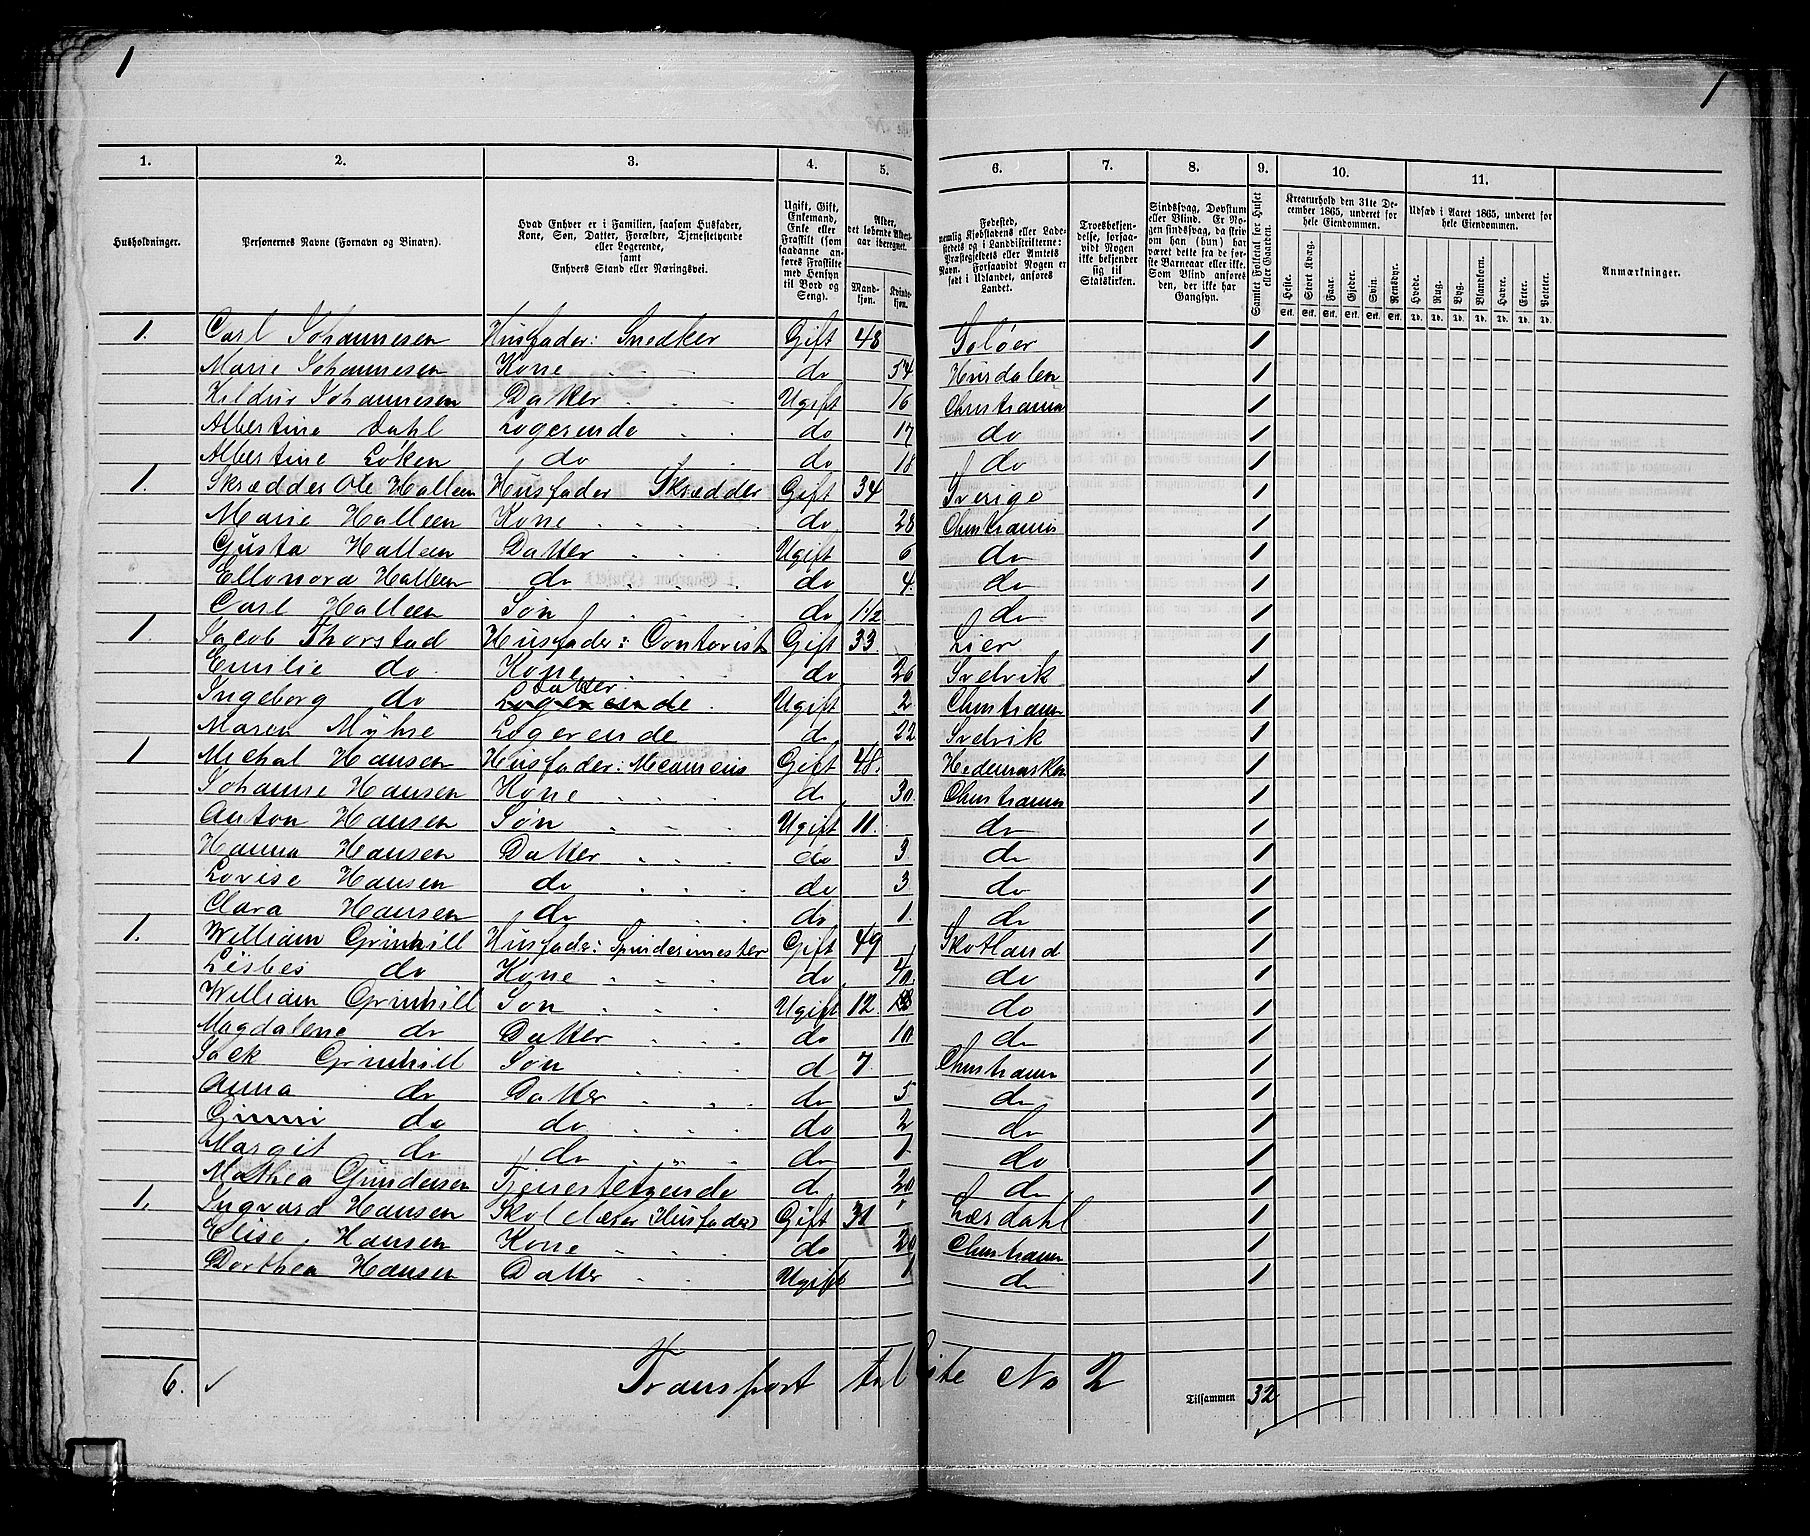 1 1
1. 2. 3. 4. 5. 6. 7. 8. 9. 10. 11.
Husholdninger.
Personernes Navne (Fornavn og Binavn).
Hvad Enhver er i Familien, saasom Husfader,
Kone, Søn, Datter, Forældre, Tjenestetyende
eller Logerende,
samt
Enhvers Stand eller Næringsvei.
Ugift, Gift,
Enkemand,
Enke eller
Fraskilt (som
saadanne an-
føres Fraskilte
med Hensyn
til Bord og
Seng).
Alder,
det løbende Alders-
aar iberegnet.
Mand-
kjøn.
Kvinde-
kjøn.
Fødested,
nemlig Kjøbstadens eller Lade-
stedets og i Landdistrikterne:
Præstegjeldets eller Amtets
Navn. Forsaavidt Nogen er
født i Udlandet, anføres
Landet.
Troesbekjen-
delse, forsaa-
vidt Nogen
ikke bekjender
sig til
Statskirken.
Sindssvag, Døvstum
eller Blind. Er No-
gen sindssvag, da skriv
om han (hun) har
været dette fra de før-
ste Barneaar eller ikke.
Som Blind anføres
den, der ikke har
Gangsyn.
Samlet Folketal for Huset
eller Gaarden.
Kreaturhold den 31te De-
cember 1865, underet for
hele Eiendommen.
Heste. Stort Kvæg. Faar. Gjeder. Svin. Rensdyr.
Stk. Stk. Stk. Stk. Stk. Stk.
Udsæd i Aaret 1865, underet for
hele Eiendommen.
Hvede. Rug. Byg. Blandkorn. Havre. Erter. Poteter.
Td. Td. Td. Td. Td. Td. Td.
Anmærkninger.
1. Carl Johannesen Husfader: Snedker Gift 48 Soløer 1
Marie Johannesen Kone do 54 Hurdalen 1
Hildur Johannesen Datter Ugift 16 Christiania 1
Albertine Dahl Logerende do 17 do 1
Albertine Løken do do 18 do 1
1. Skrædder Ole Halleen Husfader Skrædder Gift 34 Sverige 1
Marie Halleen Kone do 28 Christiania 1
Gusta Halleen Datter Ugift 6 do 1
Ellonora Halleen do do 4. do 1
Carl Halleen Søn do 1 1/2 do 1
1. Jacob Thorstad Husfader: Contorist Gift 33 Lier 1
Emilie do Kone do 26 Svelvik 1
Ingeborg do Datter Ugift 2 Christiania 1
Maren Myhre Logerende do 22 Svelvik 1
1 Michal Hansen Husfader: Gift 48. Hedemarken 1
Johanne Hansen Kone do 30. Christiania 1
Anton Hansen Søn Ugift 11. do 1
Hanna Hansen Datter do 3 do 1
Lovise Hansen do do 3 do 1
Clara Hansen do do 1. do 1
1. William Grinhill Husfader: Spinderimester Gift 49 Skotland 1
Lisbes do Kone do 40. do 1
William Grinhill Søn Ugift 12. do 1
Magdalene do Datter do 10 do 1
Jack Grinhill Søn d 7 Christiania 1
Anna do Datter do 5 do 1
Ginni do do do 2 do 1
Margit do do do 1 do 1
Mathea Gundersen Tjenestetyende d 20 do 1
1. Ingvard Hansen Skolelærer Husfader Gift 31 " Lærdahl 1
Elise Hansen Kone do 20 Christiania 1
Dorthea Hansen Datter Ugift 1 do 1
6. Transport til Liste No 2 Tilsammen 32